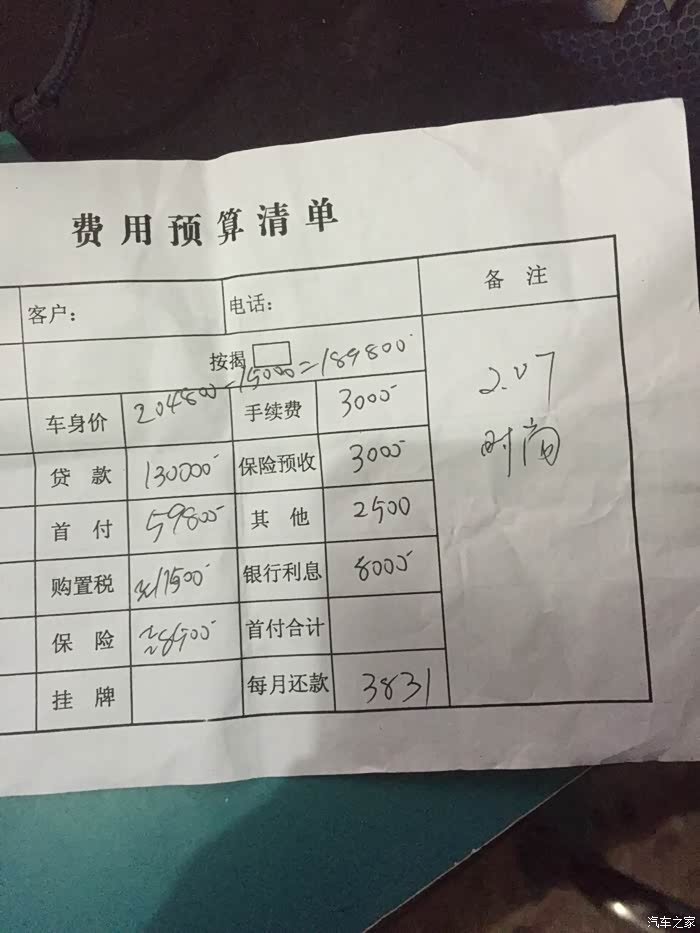 费用预算清单
客户： 电话： 备 注
按揭
204800-15000=189800
车身价 手续费 3000 2.0T
贷 款 130000 保险预收 3000 时尚
首 付 59800 其 他 2500
购置税 17500 银行利息 8000
保 险 ≈8500 首付合计
挂 牌 每月还款 3831
汽车之家